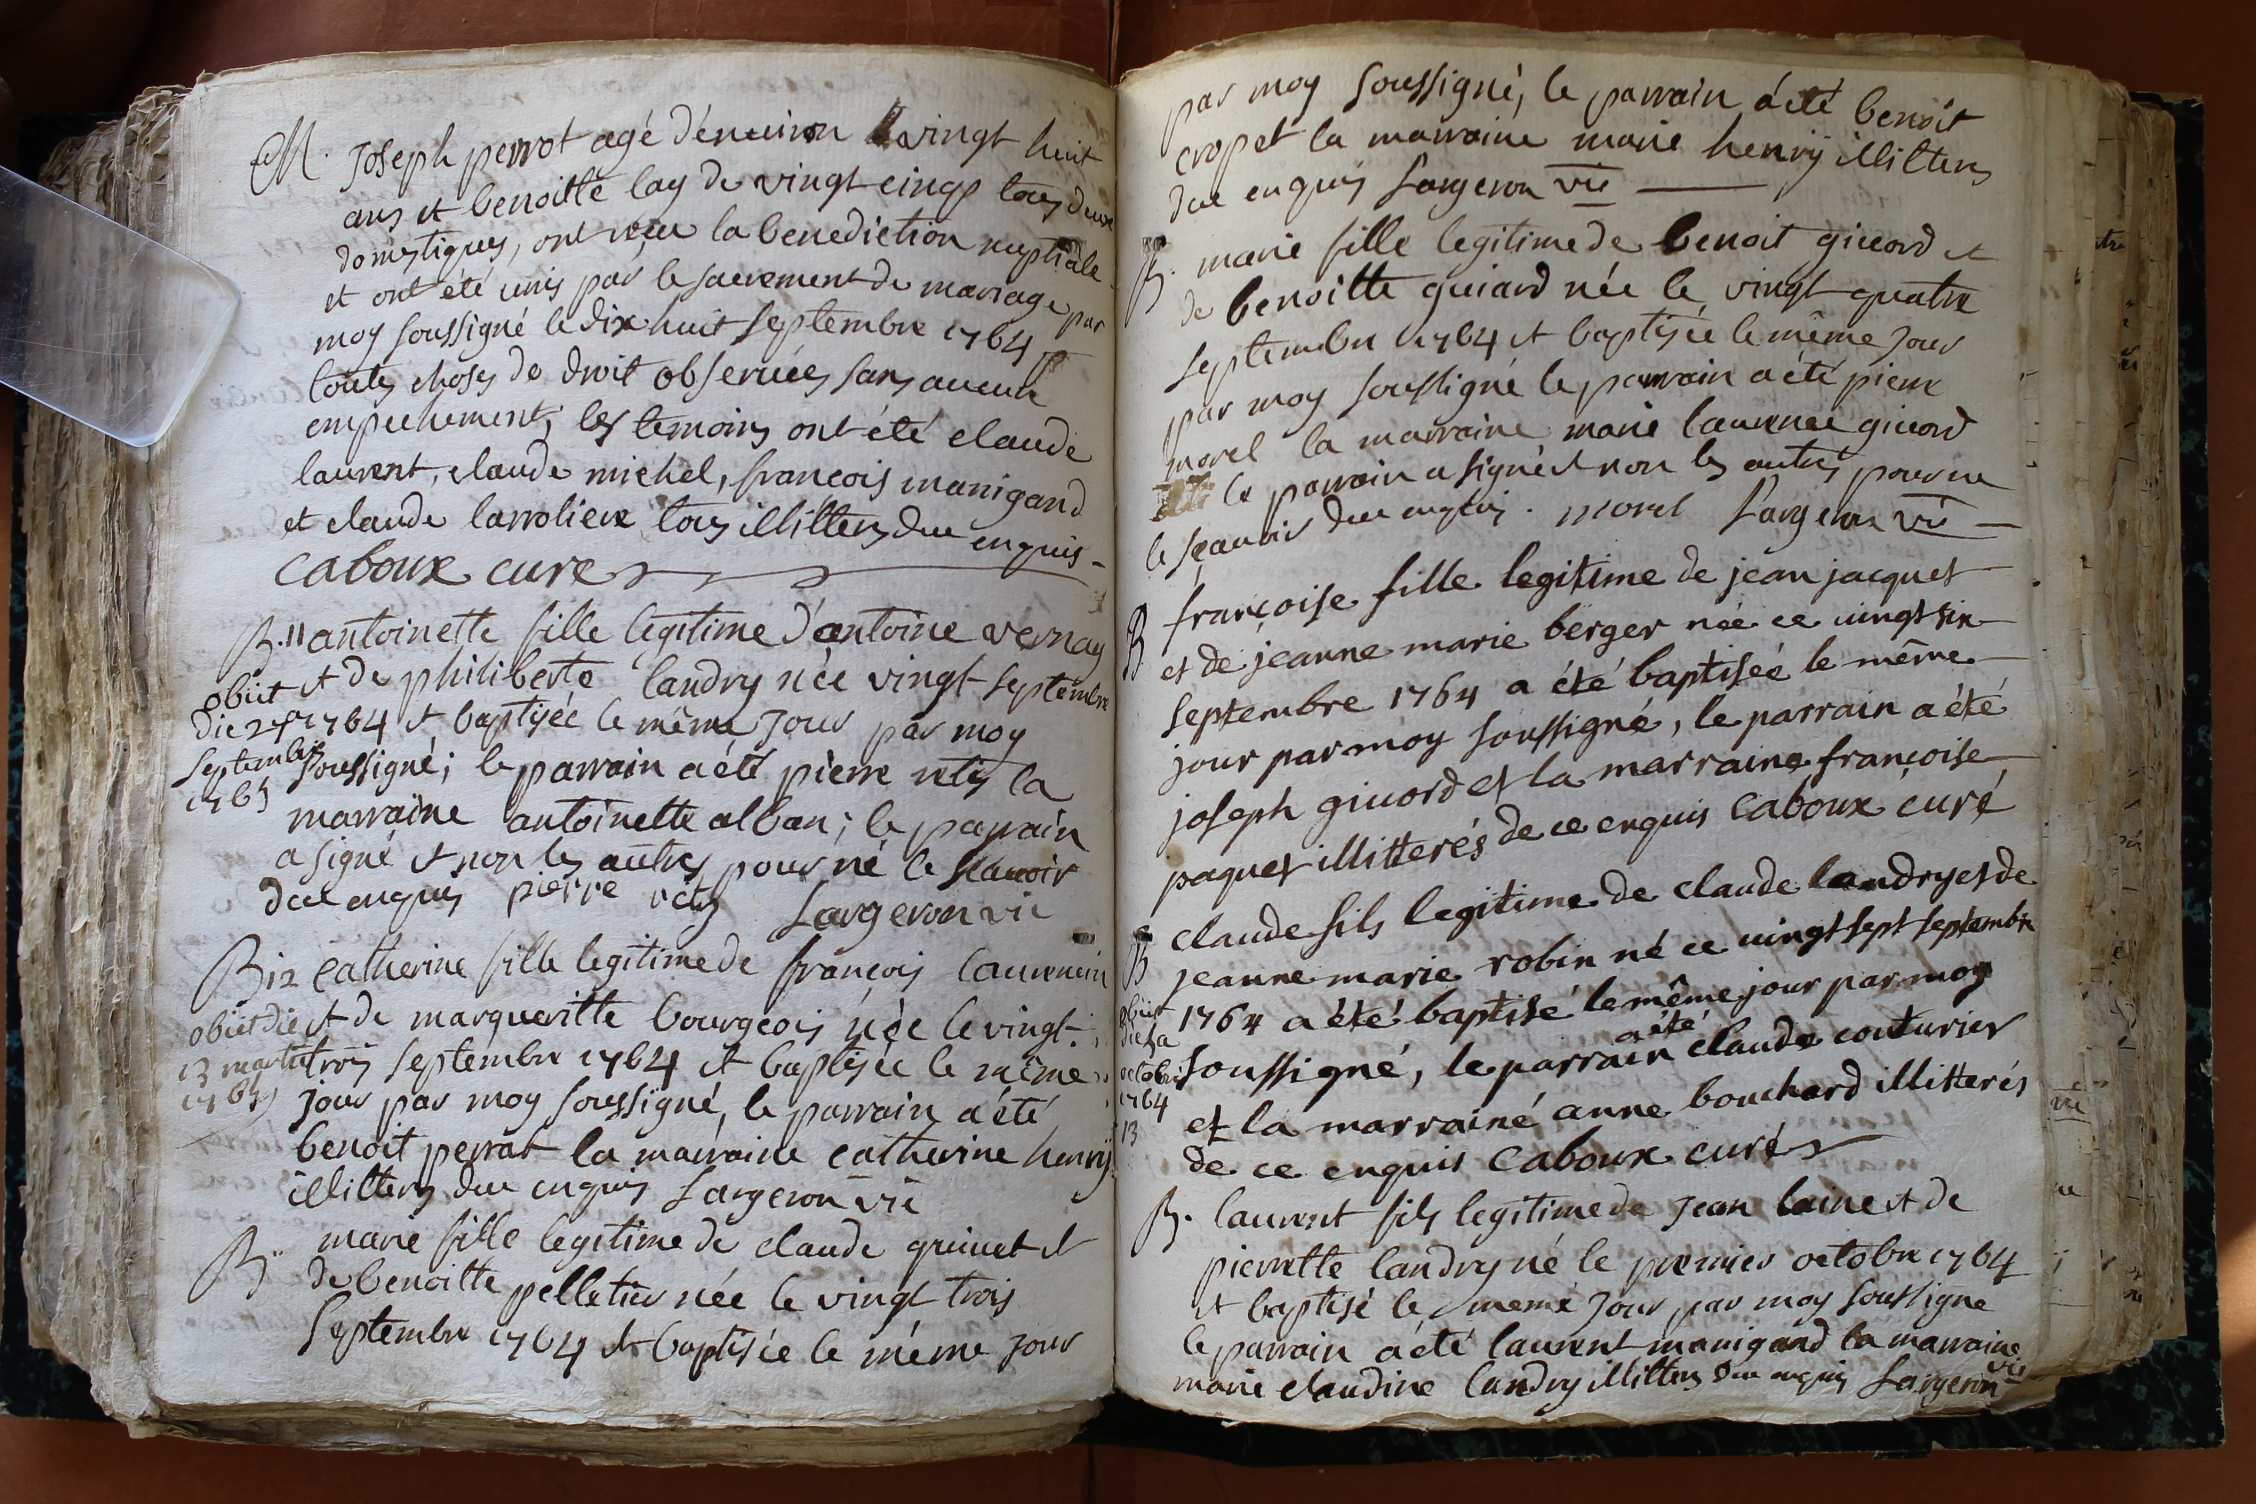 M. Joseph perrot agé d'énuiron vingt huit
ans et benoitte lay de vingt cinq tous deux
domestiques, ont reçu la benediction nuptiale
et ont été unis par le sacrement de mariage par
moy soussigné le dix huit septembre 1764
toutes choses de droit obseruées sans aucun
empechement; les temoins ont été claude
laurent, claude michel, françois manigand
et claude larroliere tous illitterés de ce enquis
caboux curé
B. 11 antoinette fille legitime d'antoine vernay
et de philiberte landry née vingt septembre
1764 et baptisée le même jour par moy
soussigné; le parrain a été pierre retis la
marraine antoinette alban; le parrain
a signé et non les autres pour né le sçauoir
de ce enquis pierre retis sargeron vic
obiit
die 27a
septembris
1765
B 12 catherine fille legitime de françois laurencin
et de margueritte bourgeois née le vingt
trois septembre 1764 et baptisée le même
jour par moy soussigné, le parrain a été
benoit perrat la marraine catherine henrÿ
illitterés de ce enquis sargeron vic
obiit die
13 martii
1765
B marie fille legitime de claude griuet et
de benoitte pelletier née le vingt trois
septembre 1764 et baptisée le même jour
par moy soussigné, le parrain a été benoit
cropet la marraine marie henrÿ illitterés
de ce enquis sargeron vic
B. marie fille legitime de benoit giuord et
de benoitte guiard née le vingt quatre
septembre 1764 et baptisée le même jour
par moy soussigné le parrain a été pierre
morel la marraine marie laurence giuord
le parrain a signé et non les autres pour ne
le sçauoir de ce enquis. morel sargeron vic
B françoise fille legitime de jean jacquet
et de jeanne marie berger née ce uingt six
septembre 1764 a été baptiseé le même
jour par moy soussigné, le parrain a été
joseph giuord et la marraine françoise
paquet illitterés de ce enquis caboux curé
B claude fils legitime de claude landry et de
jeanne marie robin né ce uingt sept septembre
1764 a été baptisé le même jour par moy
soussigné, le parrain a été claude couturier
et la marrainé anne bouchard illitterés
de ce enquis caboux curé
obiit
die 5a
octobris
1764
13
B. laurent fils legitime de jean laine et de
pierrette landry né le premier octobre 1764
et baptisé le même jour par moy soussigné
le parrain a été laurent manigand la marraine
marie claudine landry illitterés de ce enquis sargeron vic